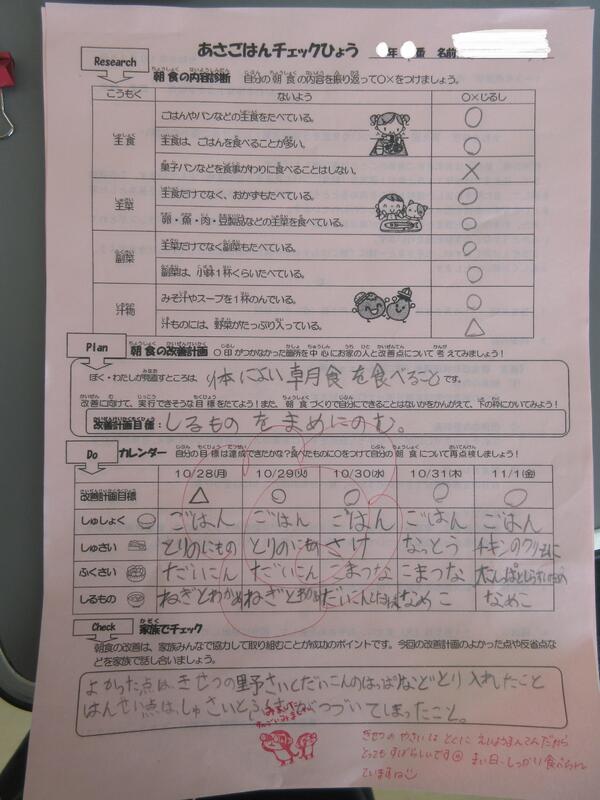 あさごはんチェックひょう 年 番 名前
Research 朝食の内容診断 自分の朝食の内容を振り返って○×をつけましょう。
こうもく ないよう ○×じるし
主食 ごはんやパンなどの主食をたべている。 ○
主食は、ごはんを食べることが多い。 ○
菓子パンなどを食事がわりに食べることはしない。 ×
主菜 主食だけでなく、おかずもたべている。 ○
卵・魚・肉・豆製品などの主菜を食べている。 ○
副菜 主菜だけでなく副菜もたべている。 ○
副菜は、小鉢1杯くらいたべている。 ○
汁物 みそ汁やスープを1杯のんでいる。 ○
汁ものには、野菜がたっぷり入っている。 △
Plan 朝食の改善計画 ○印がつかなかった箇所を中心にお家の人と改善点について考えてみましょう!
ぼく・わたしが見直すところは 体によい朝食を食べること です。
改善に向けて、実行できそうな目標をたてよう!また、朝食づくりで自分にできることはないかをかんがえて、下の枠にかいてみよう!
改善計画目標: しるものをまめにのむ。
Do カレンダー 自分の目標は達成できたかな?食べたものに○をつけて自分の朝食について再点検しましょう!
10/28(月) 10/29(火) 10/30(水) 10/31(木) 11/1(金)
改善計画目標 △ ○ ○ ○ ○
しゅしょく ごはん ごはん ごはん ごはん ごはん
しゅさい とりのにもの とりのにもの さけ なっとう チキンのクリームに
ふくさい だいこん だいこん こまつな こまつな
しるもの ねぎとわかめ ねぎとわかめ なめこ なめこ
Check 家族でチェック
朝食の改善は、家族みんなで協力して取り組むことが成功のポイントです。今回の改善計画のよかった点や反省点な
どを家族で話し合いましょう。
よかった点は、きせつの野さいとだいこんのはっぱなどとり入れたこと
はんせい点は、しゅさいとふくさいがつづいてしまったこと。
きせつのやさいはとくにえいようまんてんだから
とってもすばらしいです まい日しっかり食べられ
ていますね